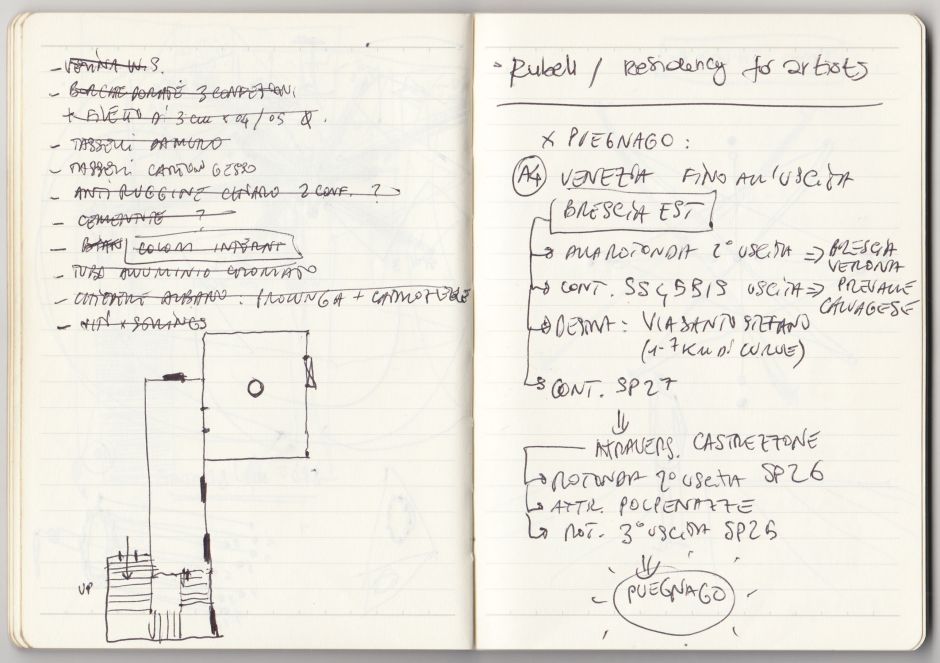 - BORCHIE DORATE 3 CONFEZIONI
+ FILETTO DI 3 cm x 04/05
- TASSELLI DA MURO
- TASSELLI CARTON GESSO
- ANTIRUGGINE CHIARO 2 CONF. ?
- CEMENTITE ?
- COLORI INTERNI
- TUBO ALLUMINIO COLORATO
- ALBANO : PROLUNGA +
UP
Rubelli / Residency for artists
X PUEGNAGO :
A4 VENEZIA FINO ALL'USCITA
BRESCIA EST
ALLA ROTONDA 2° USCITA ⇒ BRESCIA
VERONA
CONT. SS45BIS USCITA ⇒ PREVALLE
CALVAGESE
DESTRA : VIA SANTO STEFANO
(1-7 KM DI CURVE)
CONT. SP27
ATTRAVERS. CASTREZZONE
ROTONDA 2° USCITA SP26
ATTR. POLPENAZZE
ROT. 3° USCITA SP25
PUEGNAGO